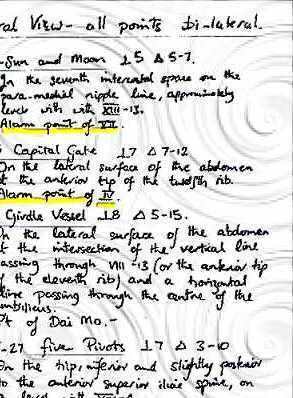 ral View - all points bi-lateral.
- Sun and Moon ⊥5 Δ 5-7.
In the seventh intercostal space on the
para-medial nipple line, approximately
level with with XIII-13.
Alarm point of VII.
Capital Gate ⊥7 Δ 7-12
On the lateral surface of the abdomen
t the anterior tip of the twelfth rib.
Alarm point of IV
Girdle Vessel ⊥8 Δ 5-15.
n the lateral surface of the abdomen
t the intersection of the vertical line
assing through VIII-13 (or the anterior tip
f the eleventh rib) and a horizontal
line passing through the centre of the
umbilicus.
Pt of Dai Mo.-
-27 five Pivots ⊥7 Δ 3-10
On the hip, inferior and slightly posterior
to the anterior superior iliac spine, on
level with